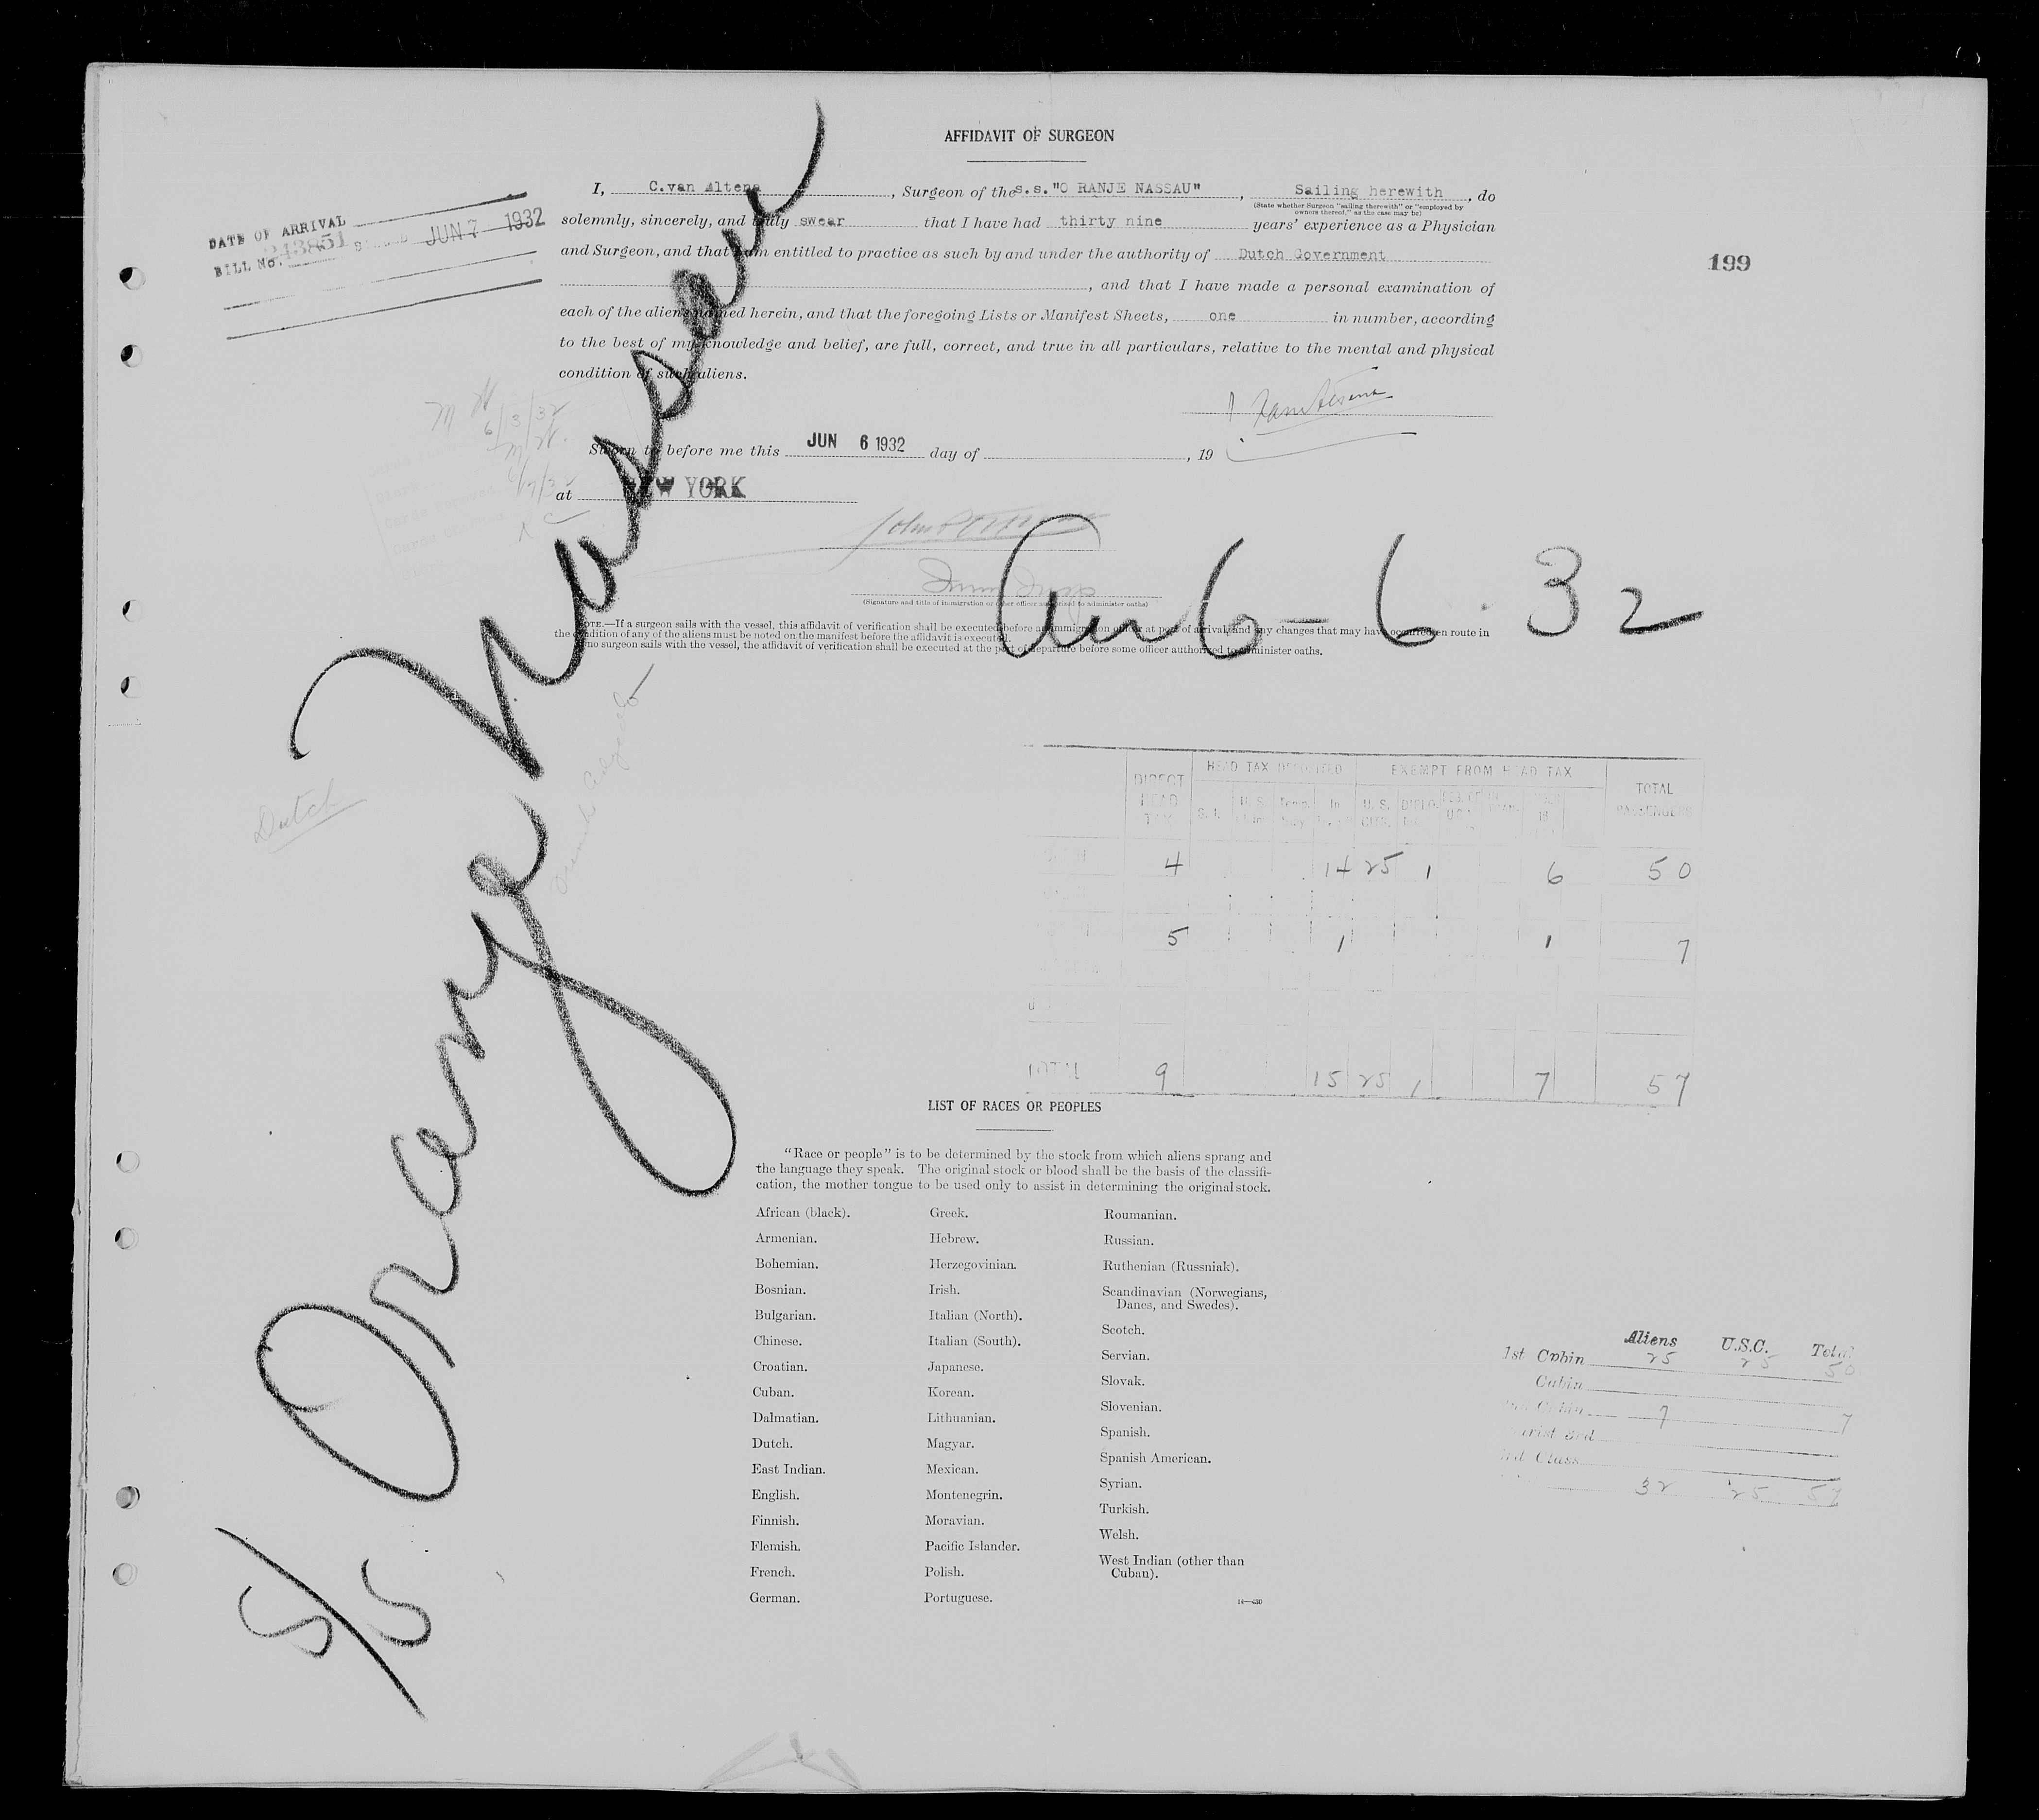 AFFIDAVIT OF SURGEON
I, C.van Altena, Surgeon of the s.s. "O RANJE NASSAU", Sailing herewith, do
(State whether Surgeon "sailing therewith" or "employed by
owners thereof," as the case may be)
solemnly, sincerely, and truly swear that I have had thirty nine years' experience as a Physician
and Surgeon, and that I am entitled to practice as such by and under the authority of Dutch Government
, and that I have made a personal examination of
each of the aliens named herein, and that the foregoing Lists or Manifest Sheets, one in number, according
to the best of my knowledge and belief, are full, correct, and true in all particulars, relative to the mental and physical
condition of such aliens.
DATE OF ARRIVAL
BILL No. 243851 JUN 7 1932
199
Sworn to before me this JUN 6 1932 day of , 19
at NEW YORK
(Signature and title of immigration or other officer authorized to administer oaths)
NOTE.—If a surgeon sails with the vessel, this affidavit of verification shall be executed before an immigration officer at port of arrival, and any changes that may have occurred en route in
the condition of any of the aliens must be noted on the manifest before the affidavit is executed.
If no surgeon sails with the vessel, the affidavit of verification shall be executed at the port of departure before some officer authorized to administer oaths.
Arr 6-6-32
S/S Orange Nassau
Dutch
DIRECT HEAD TAX HEAD TAX DEPOSITED EXEMPT FROM HEAD TAX TOTAL PASSENGERS
4 14 25 1 6 50
5 1 1 7
TOTAL 9 15 25 1 7 57
LIST OF RACES OR PEOPLES
"Race or people" is to be determined by the stock from which aliens sprang and
the language they speak. The original stock or blood shall be the basis of the classifi-
cation, the mother tongue to be used only to assist in determining the original stock.
African (black).
Armenian.
Bohemian.
Bosnian.
Bulgarian.
Chinese.
Croatian.
Cuban.
Dalmatian.
Dutch.
East Indian.
English.
Finnish.
Flemish.
French.
German.
Greek.
Hebrew.
Herzegovinian.
Irish.
Italian (North).
Italian (South).
Japanese.
Korean.
Lithuanian.
Magyar.
Mexican.
Montenegrin.
Moravian.
Pacific Islander.
Polish.
Portuguese.
Roumanian.
Russian.
Ruthenian (Russniak).
Scandinavian (Norwegians,
Danes, and Swedes).
Scotch.
Servian.
Slovak.
Slovenian.
Spanish.
Spanish American.
Syrian.
Turkish.
Welsh.
West Indian (other than
Cuban).
Aliens U.S.C. Total
1st Cabin 25 25 50
Cabin
Cabin 7 7
3rd
Class
32 25 57